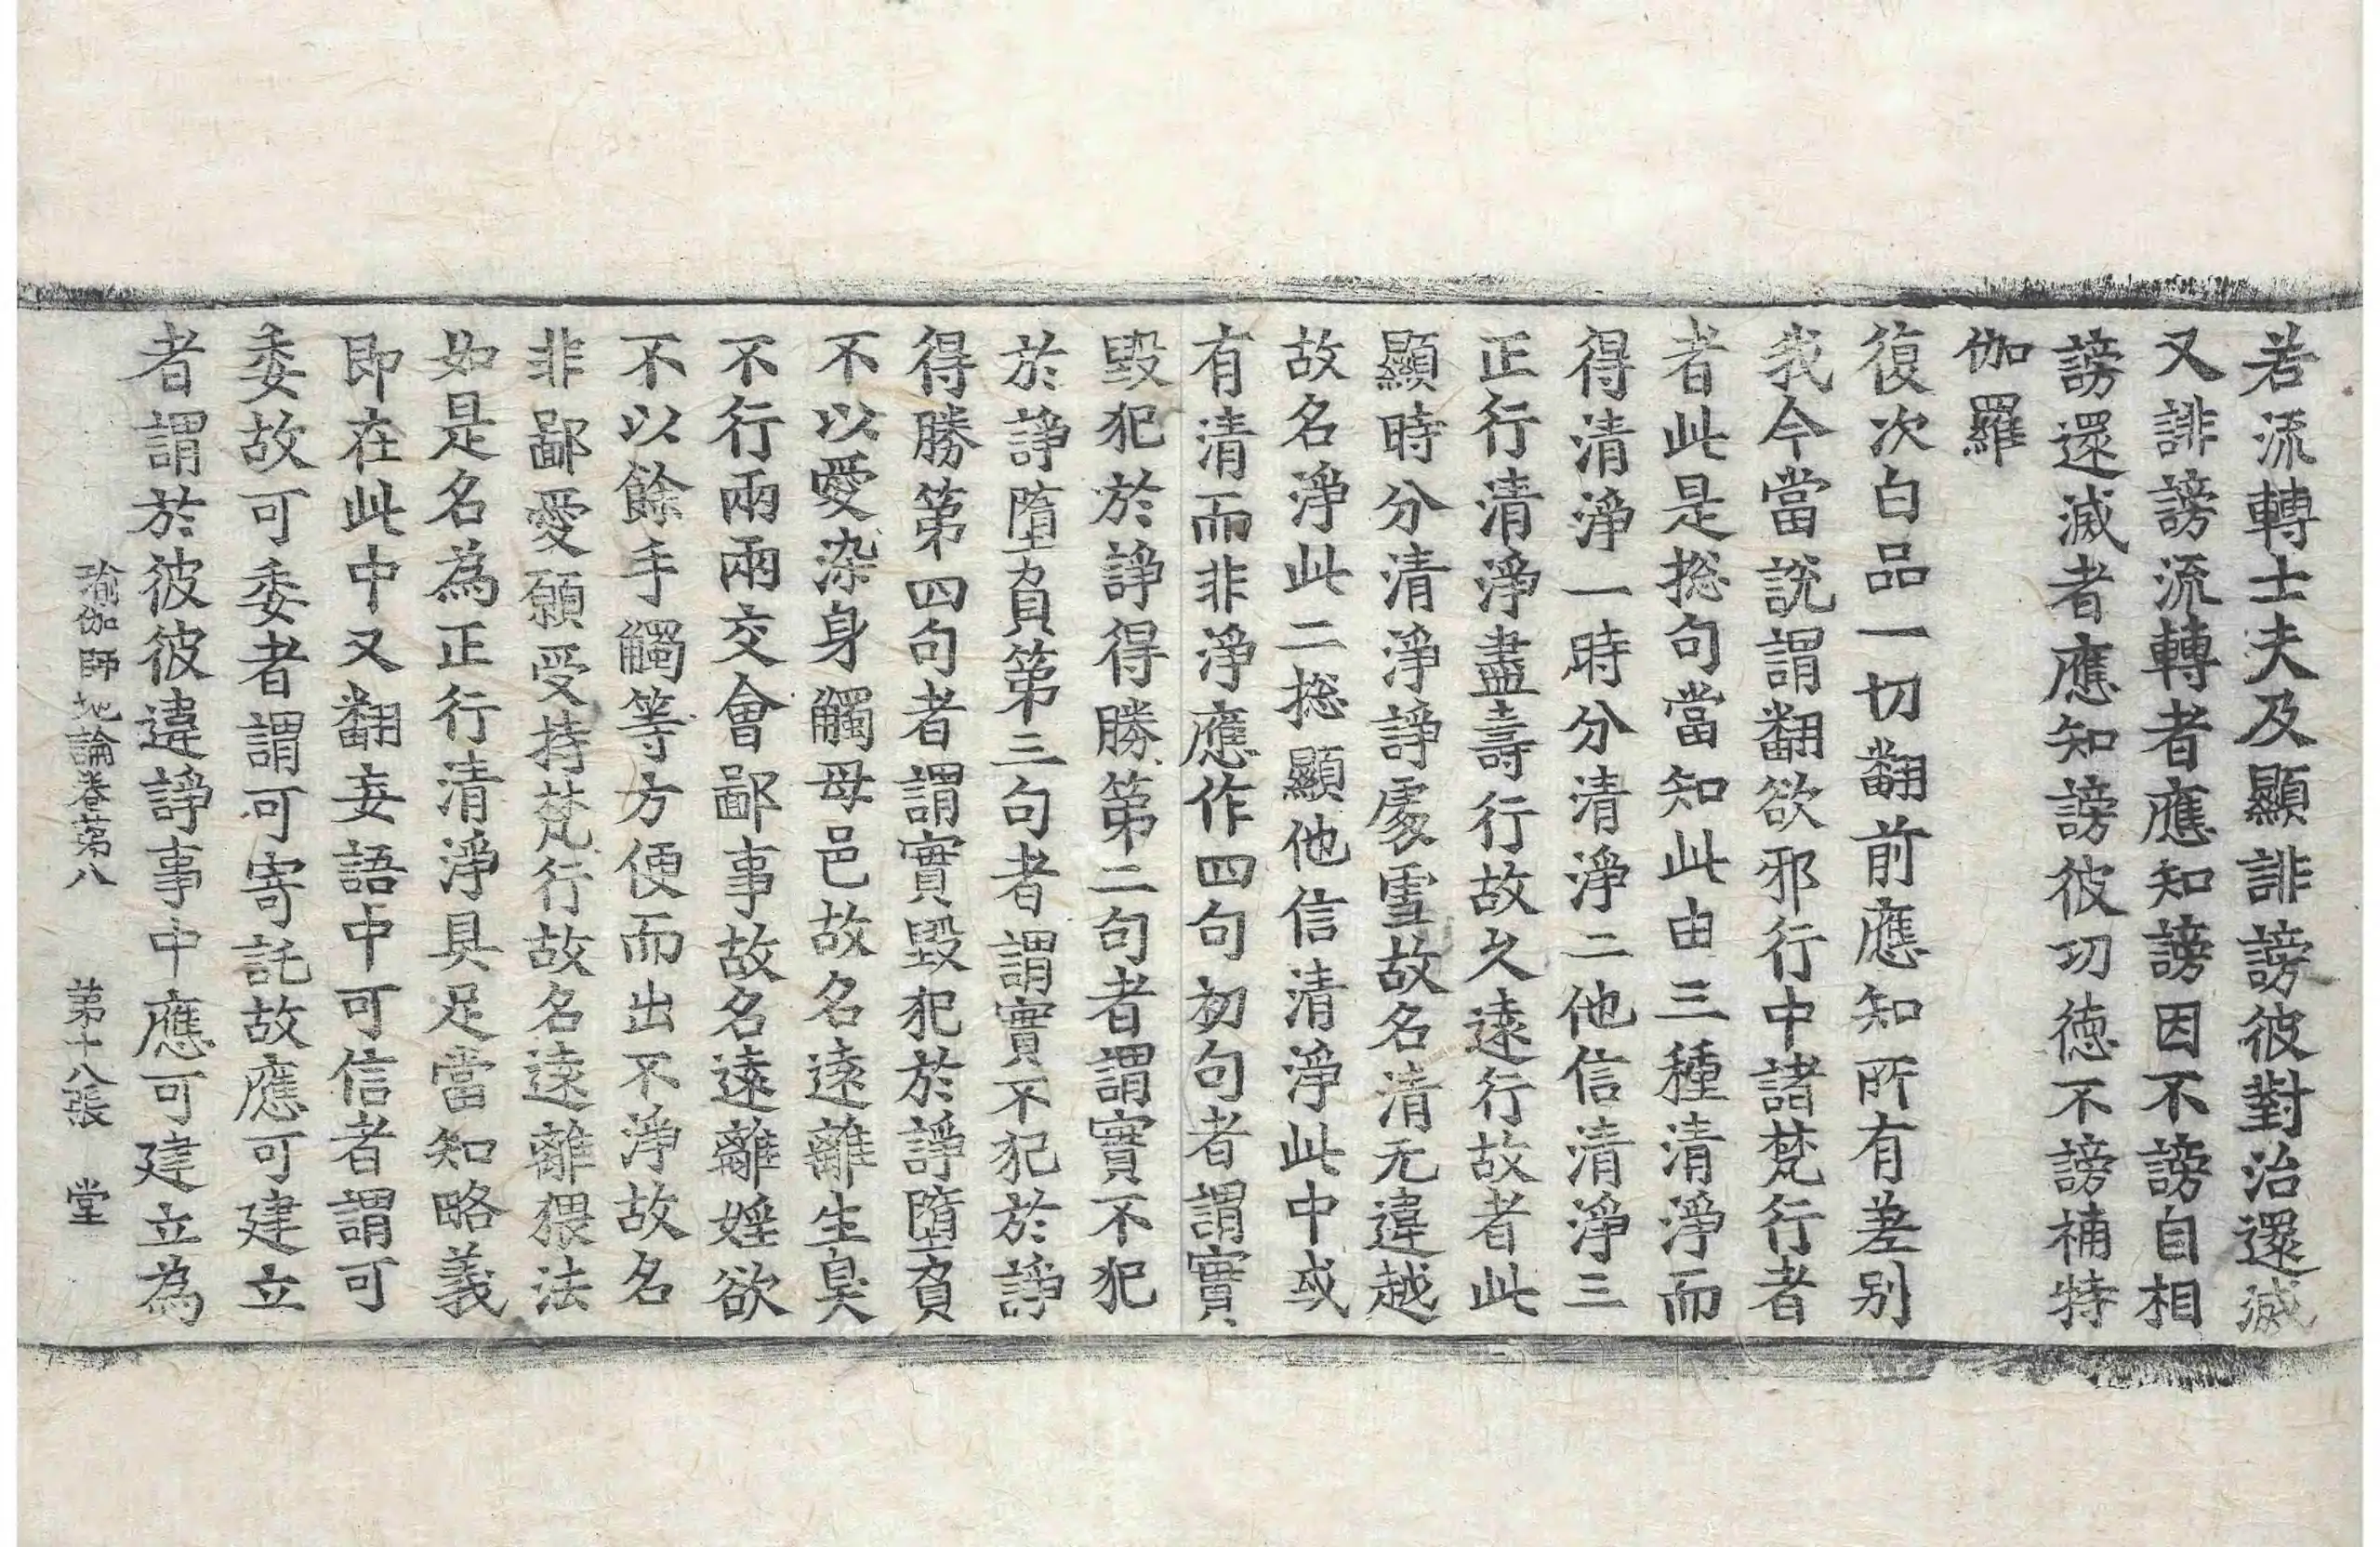 若流轉士夫及顯誹謗彼對治還滅
又誹謗流轉者應知謗因不謗自相
謗還滅者應知謗彼功德不謗補特
伽羅
復次白品一切翻前應知所有差別
我今當說謂翻欲邪行中諸梵行者
者此是捴句當知此由三種清淨而
得清淨一時分清淨二他信清淨三
正行清淨盡壽行故久遠行故者此
顯時分清淨諍處雪故名清无違越
故名淨此二捴顯他信清淨此中或
有清而非淨應作四句初句者謂實
毀犯於諍得勝第二句者謂實不犯
於諍墮負第三句者謂實不犯於諍
得勝第四句者謂實毀犯於諍墮負
不以愛染身觸母邑故名遠離生臭
不行兩兩交會鄙事故名遠離婬欲
不以餘手觸等方便而出不淨故名
非鄙愛願受持梵行故名遠離猥法
如是名為正行清淨具足當知略義
即在此中又翻妄語中可信者謂可
委故可委者謂可寄託故應可建立
者謂於彼彼違諍事中應可建立為
瑜伽師地論卷第八　第十八張　堂